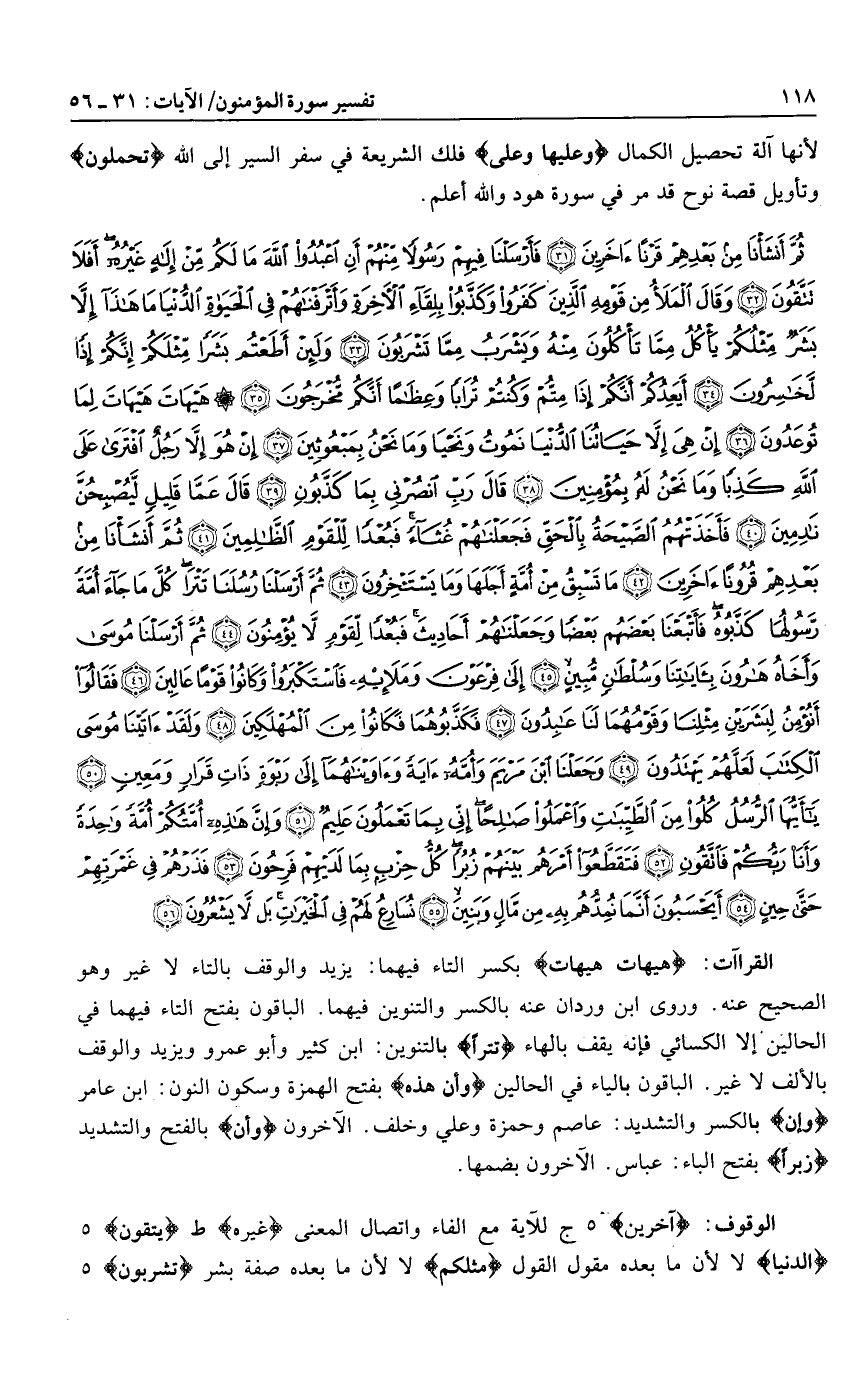 ١١٨ تفسير سورة المؤمنون/ الآيات: ٣١ ـ ٥٦
لأنها آلة تحصيل الكمال ﴿وعليها وعلى﴾ فلك الشريعة في سفر السير إلى الله ﴿تحملون﴾
وتأويل قصة نوح قد مر في سورة هود والله أعلم.
ثُمَّ أَنشَأْنَا مِنۢ بَعْدِهِمْ قَرْنًا ءَاخَرِينَ ﴿٣١﴾ فَأَرْسَلْنَا فِيهِمْ رَسُولًا مِّنْهُمْ أَنِ ٱعْبُدُوا۟ ٱللَّهَ مَا لَكُم مِّنْ إِلَٰهٍ غَيْرُهُۥٓ ۖ أَفَلَا
تَتَّقُونَ ﴿٣٢﴾ وَقَالَ ٱلْمَلَأُ مِن قَوْمِهِ ٱلَّذِينَ كَفَرُوا۟ وَكَذَّبُوا۟ بِلِقَآءِ ٱلْءَاخِرَةِ وَأَتْرَفْنَٰهُمْ فِى ٱلْحَيَوٰةِ ٱلدُّنْيَا مَا هَٰذَآ إِلَّا
بَشَرٌ مِّثْلُكُمْ يَأْكُلُ مِمَّا تَأْكُلُونَ مِنْهُ وَيَشْرَبُ مِمَّا تَشْرَبُونَ ﴿٣٣﴾ وَلَئِنْ أَطَعْتُم بَشَرًا مِّثْلَكُمْ إِنَّكُمْ إِذًا
لَّخَٰسِرُونَ ﴿٣٤﴾ أَيَعِدُكُمْ أَنَّكُمْ إِذَا مِتُّمْ وَكُنتُمْ تُرَابًا وَعِظَٰمًا أَنَّكُم مُّخْرَجُونَ ﴿٣٥﴾ ۞ هَيْهَاتَ هَيْهَاتَ لِمَا
تُوعَدُونَ ﴿٣٦﴾ إِنْ هِىَ إِلَّا حَيَاتُنَا ٱلدُّنْيَا نَمُوتُ وَنَحْيَا وَمَا نَحْنُ بِمَبْعُوثِينَ ﴿٣٧﴾ إِنْ هُوَ إِلَّا رَجُلٌ ٱفْتَرَىٰ عَلَى
ٱللَّهِ كَذِبًا وَمَا نَحْنُ لَهُۥ بِمُؤْمِنِينَ ﴿٣٨﴾ قَالَ رَبِّ ٱنصُرْنِى بِمَا كَذَّبُونِ ﴿٣٩﴾ قَالَ عَمَّا قَلِيلٍ لَّيُصْبِحُنَّ
نَٰدِمِينَ ﴿٤٠﴾ فَأَخَذَتْهُمُ ٱلصَّيْحَةُ بِٱلْحَقِّ فَجَعَلْنَٰهُمْ غُثَآءً ۚ فَبُعْدًا لِّلْقَوْمِ ٱلظَّٰلِمِينَ ﴿٤١﴾ ثُمَّ أَنشَأْنَا مِنۢ
بَعْدِهِمْ قُرُونًا ءَاخَرِينَ ﴿٤٢﴾ مَا تَسْبِقُ مِنْ أُمَّةٍ أَجَلَهَا وَمَا يَسْتَـْٔخِرُونَ ﴿٤٣﴾ ثُمَّ أَرْسَلْنَا رُسُلَنَا تَتْرَا ۖ كُلَّ مَا جَآءَ أُمَّةً
رَّسُولُهَا كَذَّبُوهُ ۚ فَأَتْبَعْنَا بَعْضَهُم بَعْضًا وَجَعَلْنَٰهُمْ أَحَادِيثَ ۚ فَبُعْدًا لِّقَوْمٍ لَّا يُؤْمِنُونَ ﴿٤٤﴾ ثُمَّ أَرْسَلْنَا مُوسَىٰ
وَأَخَاهُ هَٰرُونَ بِـَٔايَٰتِنَا وَسُلْطَٰنٍ مُّبِينٍ ﴿٤٥﴾ إِلَىٰ فِرْعَوْنَ وَمَلَإِي۟هِۦ فَٱسْتَكْبَرُوا۟ وَكَانُوا۟ قَوْمًا عَالِينَ ﴿٤٦﴾ فَقَالُوٓا۟
أَنُؤْمِنُ لِبَشَرَيْنِ مِثْلِنَا وَقَوْمُهُمَا لَنَا عَٰبِدُونَ ﴿٤٧﴾ فَكَذَّبُوهُمَا فَكَانُوا۟ مِنَ ٱلْمُهْلَكِينَ ﴿٤٨﴾ وَلَقَدْ ءَاتَيْنَا مُوسَى
ٱلْكِتَٰبَ لَعَلَّهُمْ يَهْتَدُونَ ﴿٤٩﴾ وَجَعَلْنَا ٱبْنَ مَرْيَمَ وَأُمَّهُۥٓ ءَايَةً وَءَاوَيْنَٰهُمَآ إِلَىٰ رَبْوَةٍ ذَاتِ قَرَارٍ وَمَعِينٍ ﴿٥٠﴾
يَٰٓأَيُّهَا ٱلرُّسُلُ كُلُوا۟ مِنَ ٱلطَّيِّبَٰتِ وَٱعْمَلُوا۟ صَٰلِحًا ۖ إِنِّى بِمَا تَعْمَلُونَ عَلِيمٌ ﴿٥١﴾ وَإِنَّ هَٰذِهِۦٓ أُمَّتُكُمْ أُمَّةً وَٰحِدَةً
وَأَنَا۠ رَبُّكُمْ فَٱتَّقُونِ ﴿٥٢﴾ فَتَقَطَّعُوٓا۟ أَمْرَهُم بَيْنَهُمْ زُبُرًا ۖ كُلُّ حِزْبٍۭ بِمَا لَدَيْهِمْ فَرِحُونَ ﴿٥٣﴾ فَذَرْهُمْ فِى غَمْرَتِهِمْ
حَتَّىٰ حِينٍ ﴿٥٤﴾ أَيَحْسَبُونَ أَنَّمَا نُمِدُّهُم بِهِۦ مِن مَّالٍ وَبَنِينَ ﴿٥٥﴾ نُسَارِعُ لَهُمْ فِى ٱلْخَيْرَٰتِ ۚ بَل لَّا يَشْعُرُونَ ﴿٥٦﴾
القراآت: ﴿هيهات هيهات﴾ بكسر التاء فيهما: يزيد والوقف بالتاء لا غير وهو
الصحيح عنه. وروى ابن وردان عنه بالكسر والتنوين فيهما. الباقون بفتح التاء فيهما في
الحالين إلا الكسائي فإنه يقف بالهاء ﴿تتراً﴾ بالتنوين: ابن كثير وأبو عمرو ويزيد والوقف
بالألف لا غير. الباقون بالياء في الحالين ﴿وأن هذه﴾ بفتح الهمزة وسكون النون: ابن عامر
﴿وإن﴾ بالكسر والتشديد: عاصم وحمزة وعلي وخلف. الآخرون ﴿وأن﴾ بالفتح والتشديد
﴿زبراً﴾ بفتح الباء: عباس. الآخرون بضمها.
الوقوف: ﴿آخرين﴾ ٥ ج للآية مع الفاء واتصال المعنى ﴿غيره﴾ ط ﴿يتقون﴾ ٥
﴿الدنيا﴾ لا لأن ما بعده مقول القول ﴿مثلكم﴾ لا لأن ما بعده صفة بشر ﴿تشربون﴾ ٥